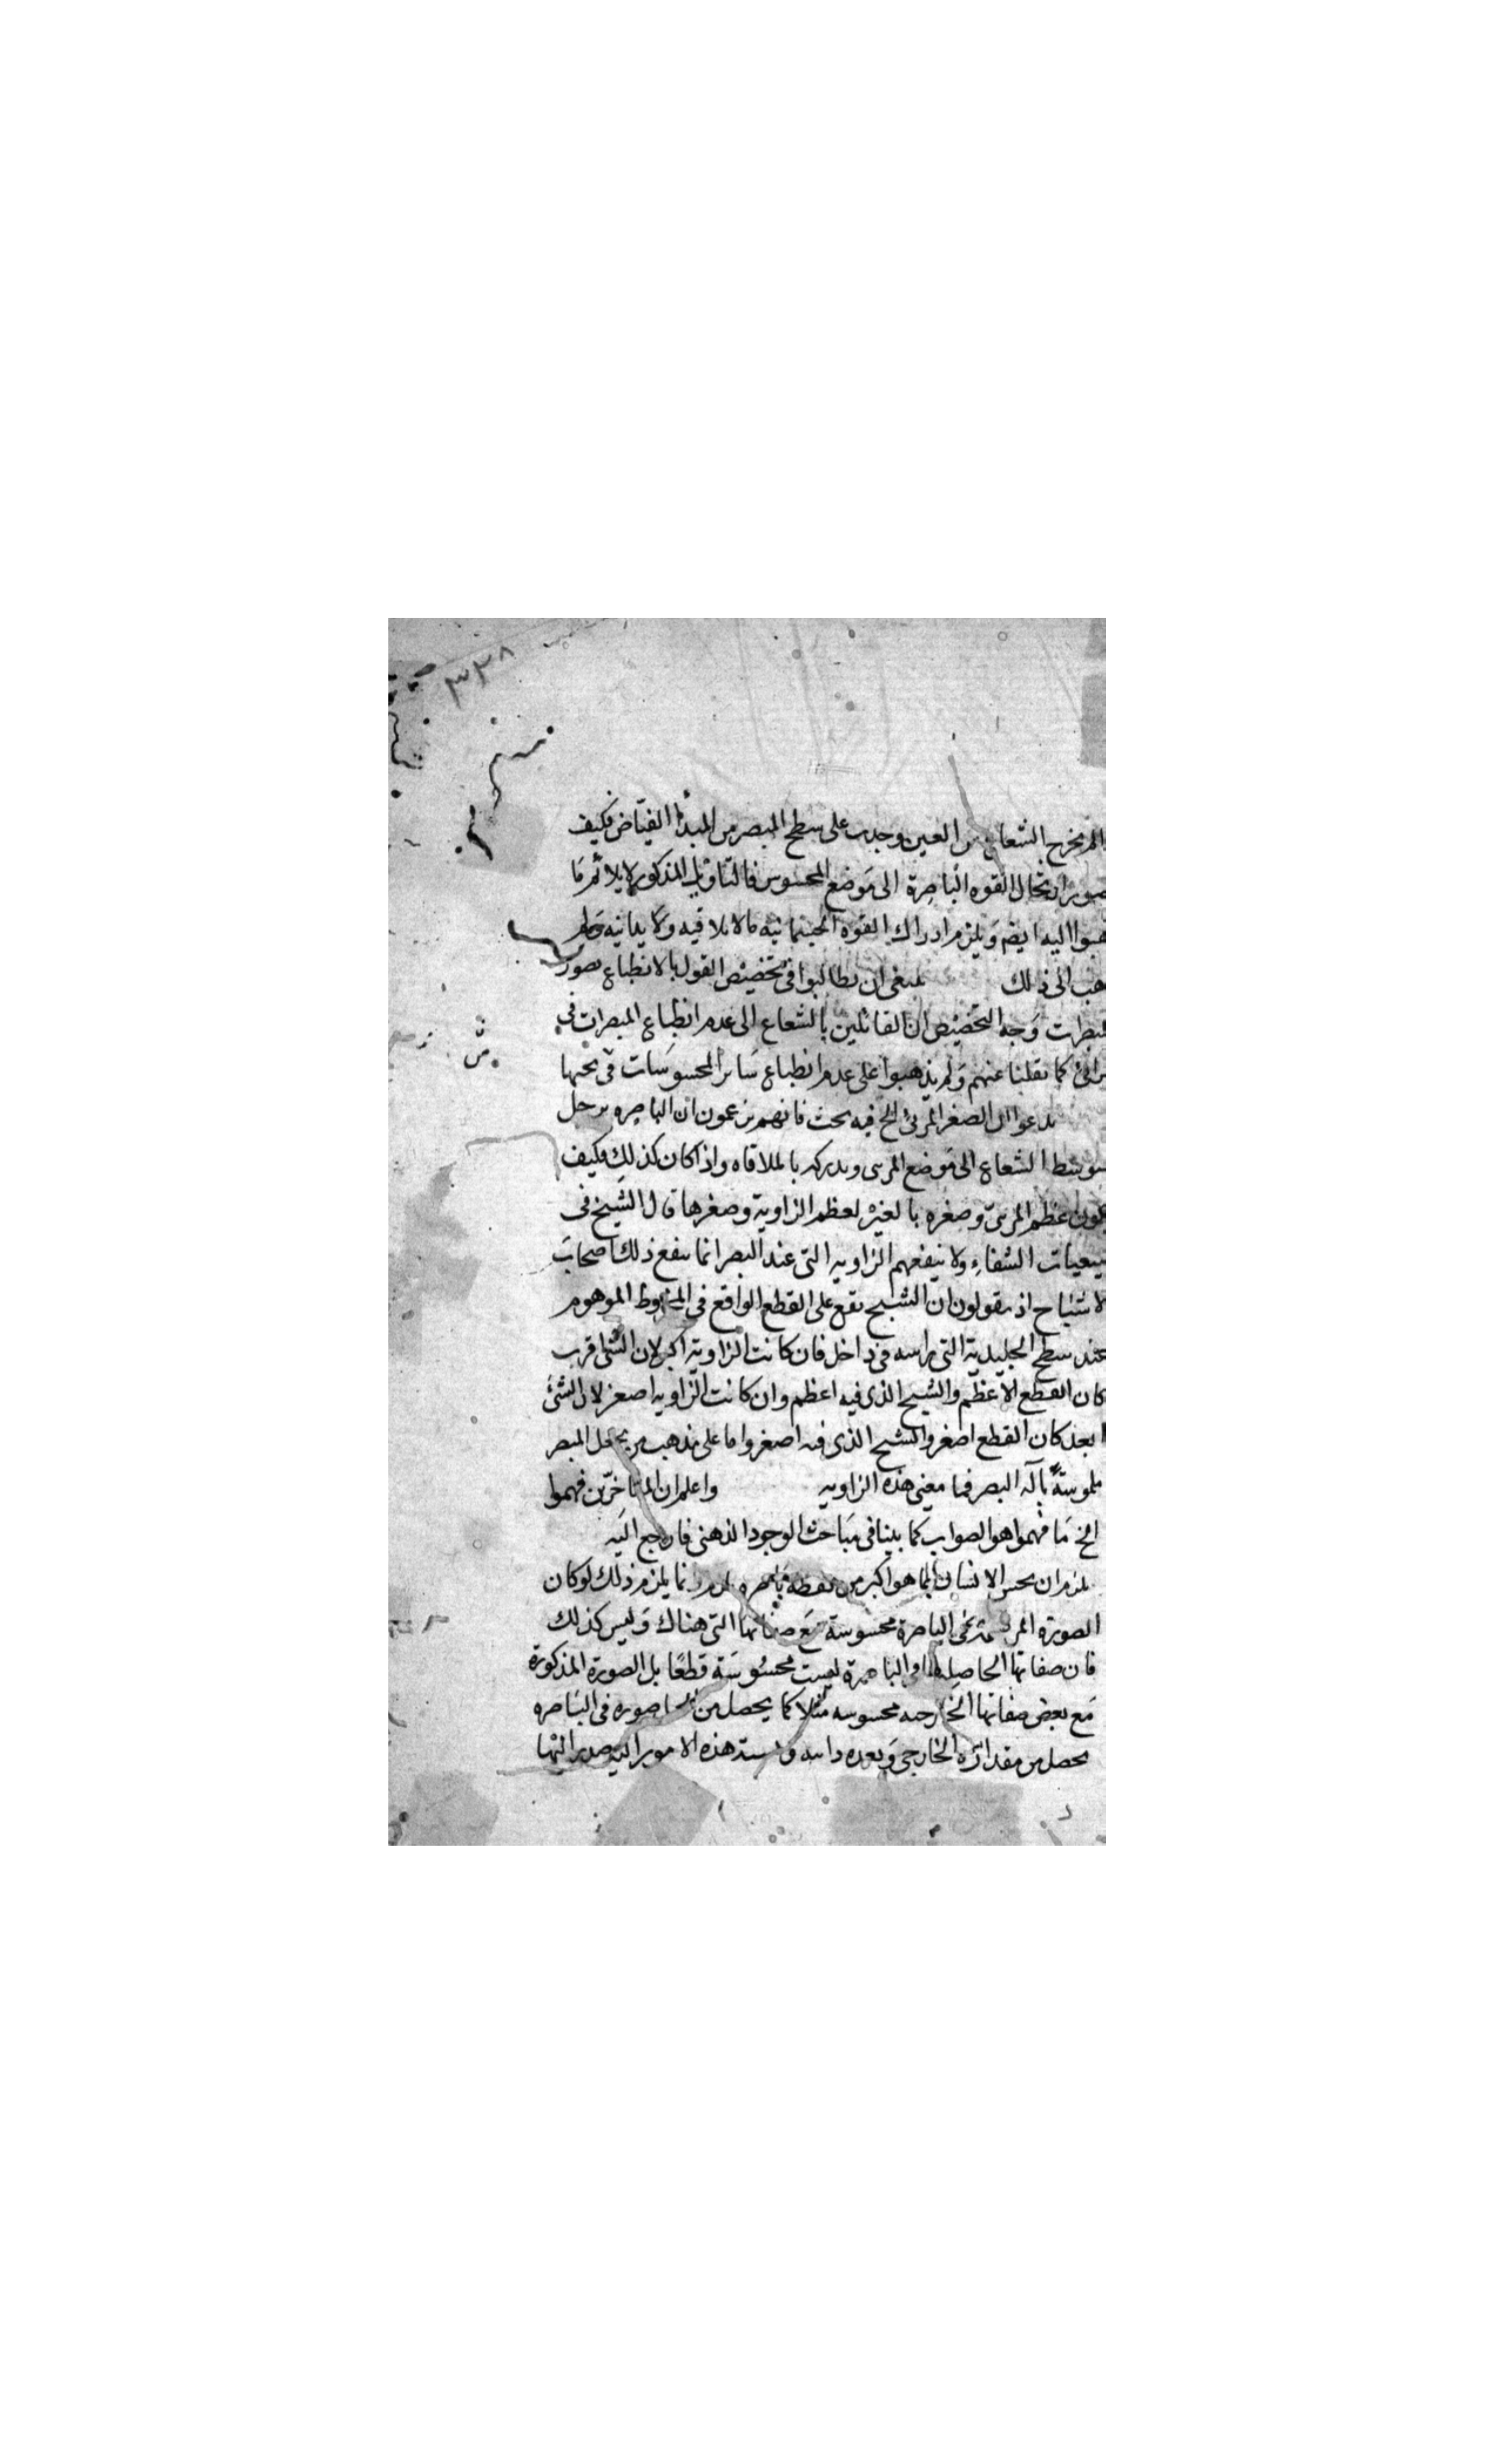 ٣٣٨
الشعاع من العين وجدت على سطح المبصر من المبدأ الفيّاض فكيف
القوه الباصرة الى موضع المحسوس فالتاويل المذكور لا يلائم ما
اليه ايضم ويلزم ادراك القوه الجسمانيه مالا يلاقيه ولا يدانيه ولم
الى ذلك ينبغى ان يطالبوا فى تخصيص القول بالانطباع بصور
وجه التخصيص ان القائلين بالشعاع الى عدم انطباع المبصرات فى
كما نقلنا عنهم ولم يذهبوا على عدم انطباع سائر المحسوسات فى محها
ان الصغر المرئى الخ فيه بحث فانهم يزعمون ان الباصره يرحل
الشعاع الى موضع المرىى ويدركه بالملاقاه واذا كان كذلك فكيف
عظم المرىىّ وصغره بالغير لعظم الزاوية وصغرها قال الشيخ فى
الشفاء ولا ينفعهم الزاويه التى عند البصر انما ينفع ذلك اصحاب
اذ يقولون ان الشبح يقع على القطع الواقع فى المخروط الموهوم
عند سطح الجليدية التى راسه فى داخل فان كانت الزاوية اكبر لان الشئ اقرب
كان القطع الاعظم والشبح الذى فيه اعظم وان كانت الزاويه اصغر لان الشئ
ابعد كان القطع اصغر والشبح الذى فيه اصغر واما على مذهب من يجعل المبصر
ملموسة بآلة البصر فما معنى هذه الزاويه واعلم ان المتاخرّين فهموا
الخ ما فهموا هو الصواب كما بينا فى مباحث الوجود الذهنى فارجع اليه
يلزم ان يحس الانسان بما هو اكبر من نقطة انما يلزم ذلك لو كان
الصورة فى الباصرة محسوسة مع صفاتها التى هناك وليس كذلك
فان صفاتها الحاصله فى الباصرة ليست محسوسة قطعا بل الصورة المذكورة
مع بعض صفاتها الخارجيه محسوسه مثلا كما يحصل من صوره فى الباصره
يحصل من مقداره الخارجى وبعده هذه الامور اليه